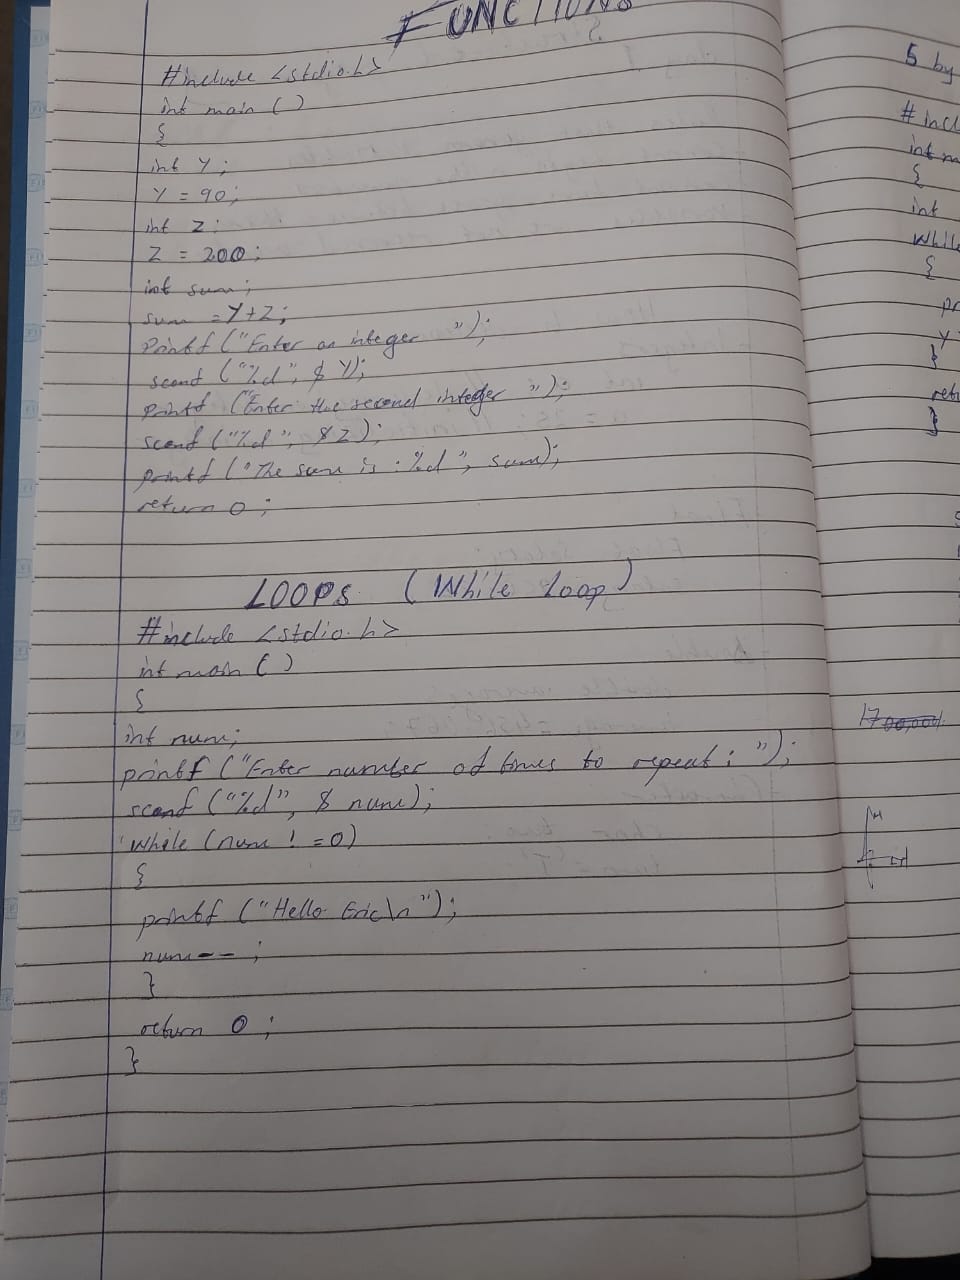 FUNCTIONS
#include <stdio.h>
int main ()
{
int Y;
Y = 90;
int Z;
Z = 200;
int sum;
sum = Y+Z;
Printf ("Enter an integer ");
scanf ("%d", & Y);
printf ("Enter the second integer ");
scanf ("%d", & Z);
printf ("The sum is : %d", sum);
return 0;
LOOPS (While loop)
#include <stdio.h>
int main ()
{
int num;
printf ("Enter number of times to repeat: ");
scanf ("%d", & num);
While (num != 0)
{
printf ("Hello Eric\n");
num--;
}
return 0;
}
5 by
# incl
int m
{
int
while
{
pr
y
}
retu
}